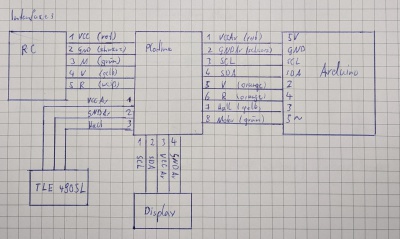 Interfaces
RC
1 VCC (rot)
2 GND (schwarz)
3 M (grün)
4 V (gelb)
5 R (weiß)
Platine
1 VCCAr (rot)
2 GNDAr (schwarz)
3 SCL
4 SDA
5 V (orange)
6 R (orange)
7 Hall (gelb)
8 Motor (grün)
5V
GND
SCL
SDA
2
4
3
5~
Arduino
VCCAr 1
GNDAr 2
Hall 3
1 2 3 4
SCL
SDA
VCCAr
GNDAr
TLE 4905L
Display